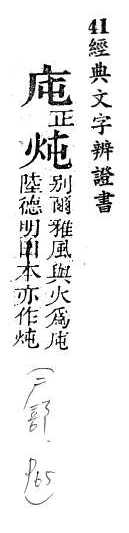 41經典文字辨證書
庉正炖別爾雅風與火爲庉
陸德明曰本亦作炖
(广部 P65)